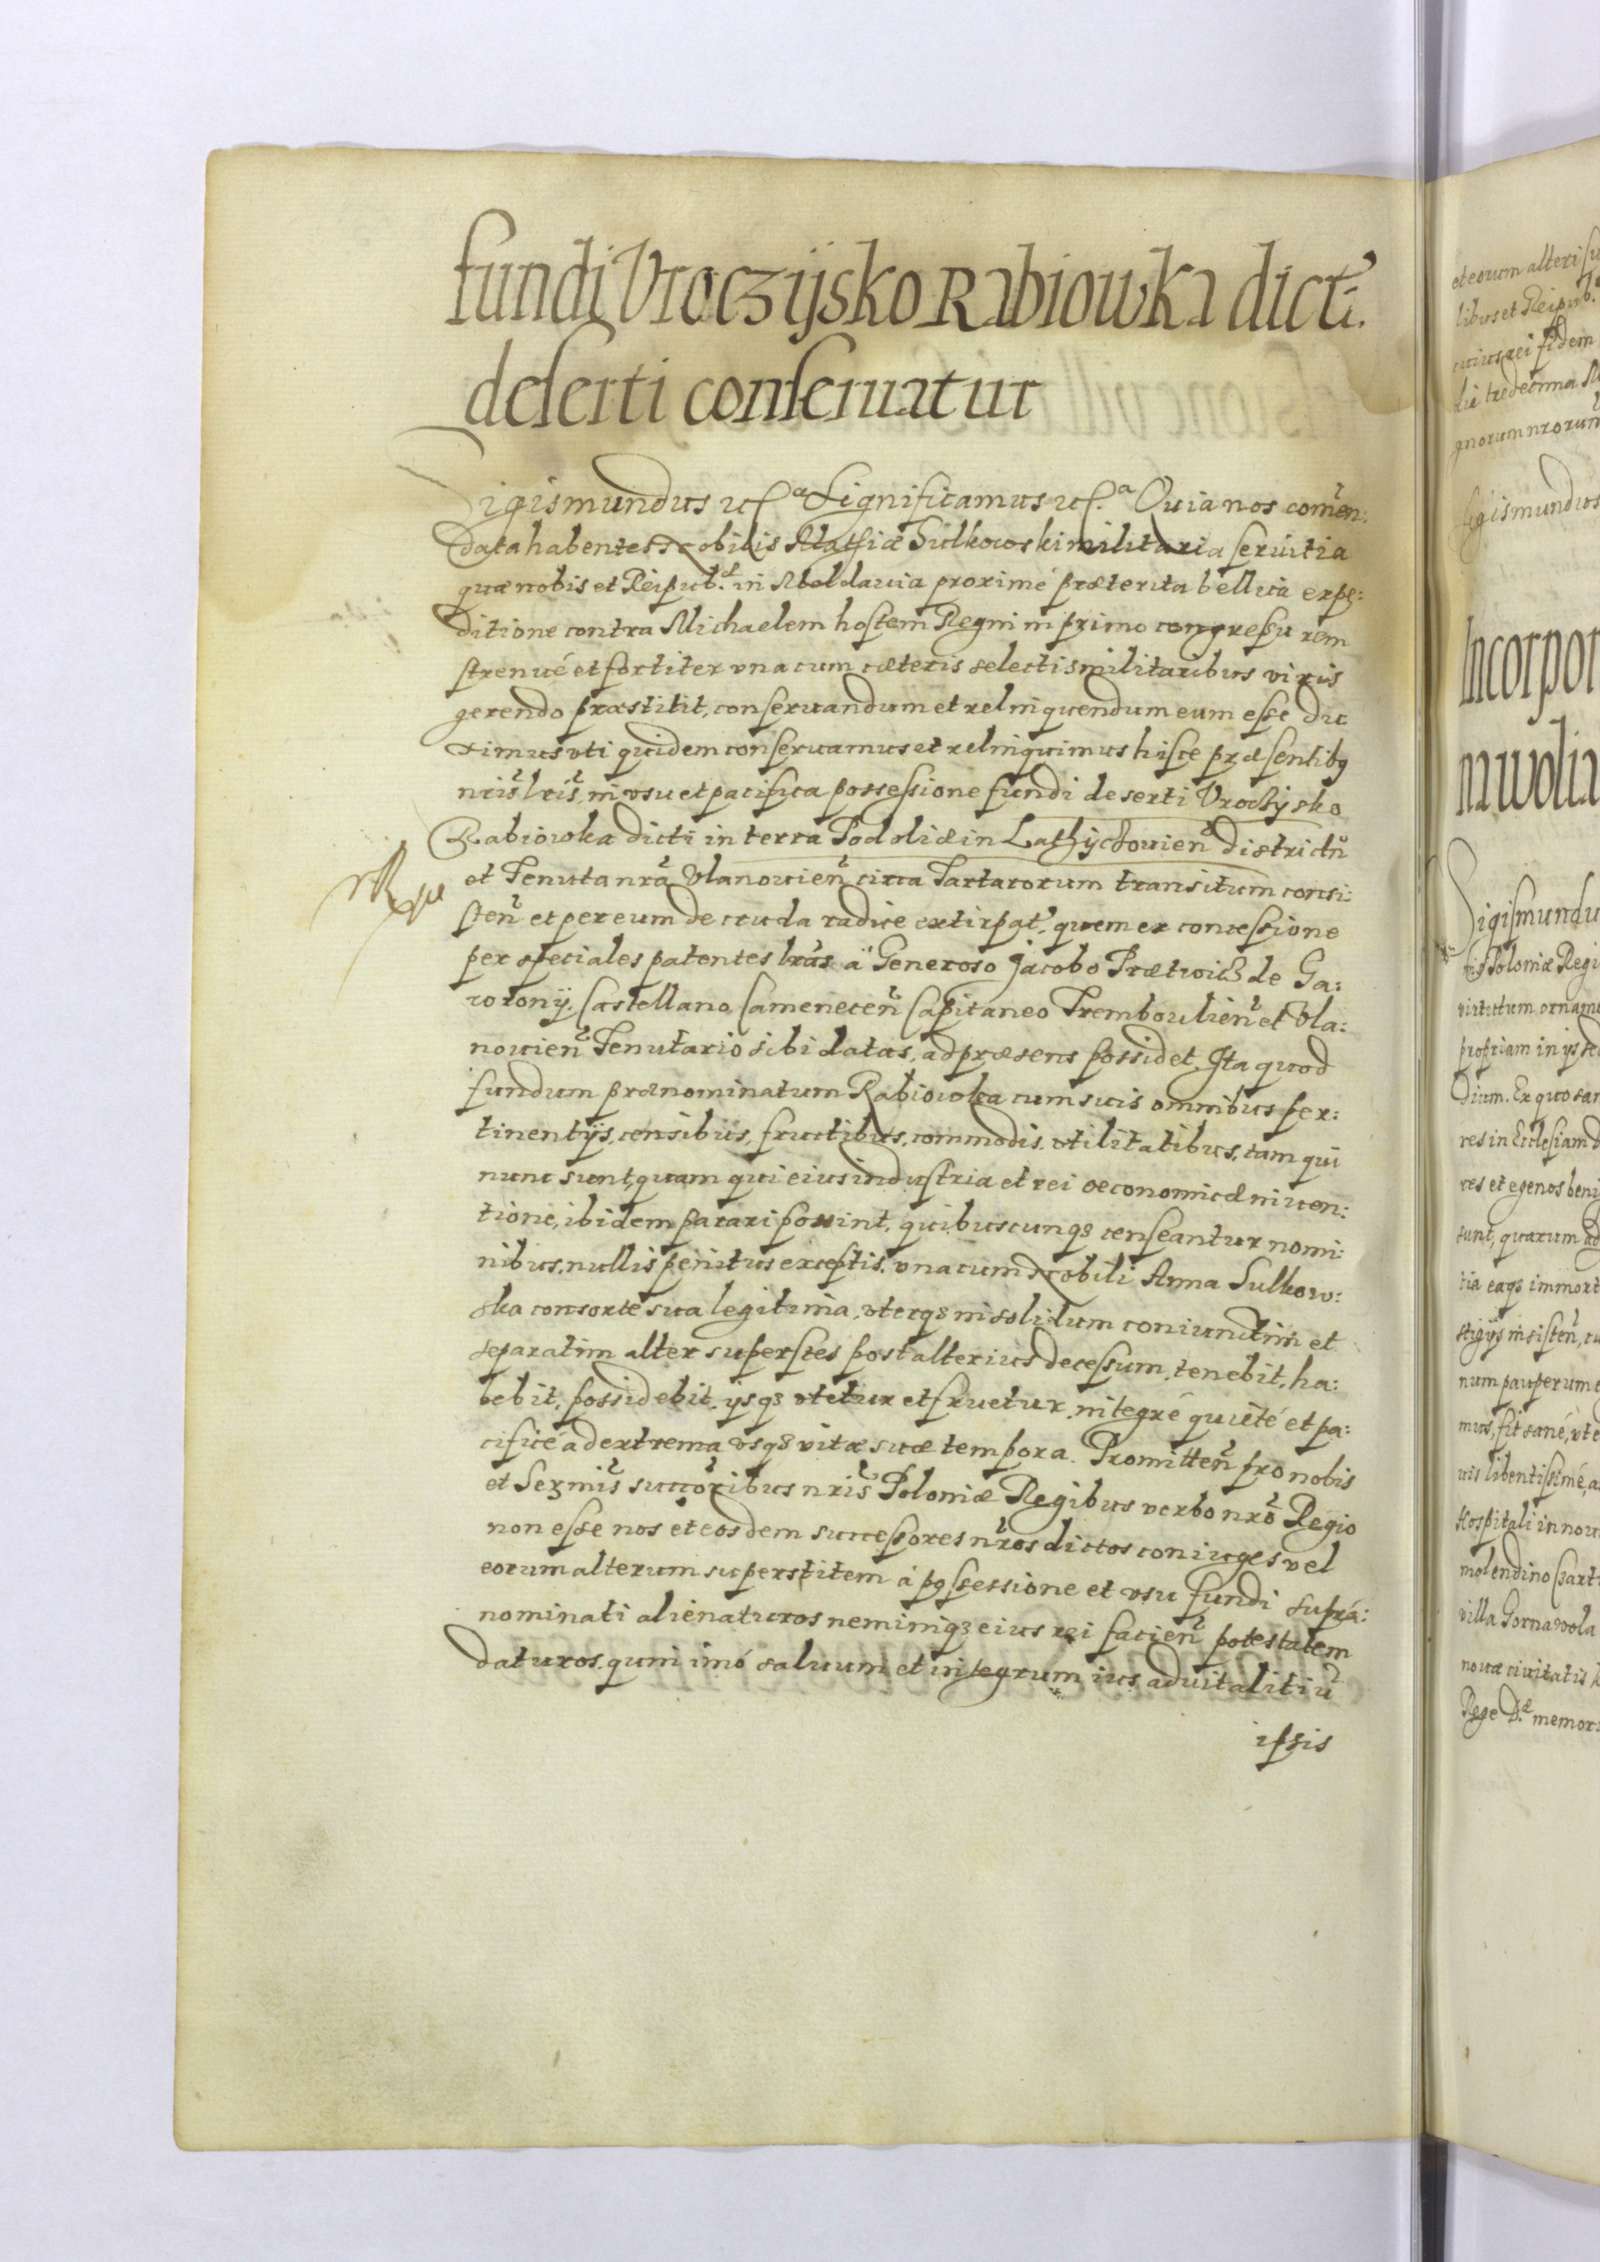 fundi Vroczijsko Rabiowka dicti.
deserti conseruatur
Sigismundus etc.a Significamus etc.a Quia nos com̃en:
data habentes Nobilis Mathiæ Sulkowski militaria seruitia
quæ nobis et Reipub. in Moldauia proximé præterita bellica expe:
ditione contra Michaelem hostem Regni in primo congressu rem
strenué et fortiter vna cum cæteris selectis militaribus viris
gerendo præstitit, conseruandum et relinquendum eum esse du
ximus vti quidem conseruamus et relinquimus hisce præsentibq
nr̃is lr̃is, in vsu et pacifica possessione fundi deserti Vroczysko
Rabiowka dicti in terra Podoliæ in Lathyczouien̄ districtu
et Tenuta nr̃a Vlanouien̄ circa Tartarorum transitum consi:
sten̄ et per eum de cruda radice extirpat, quem ex concessione
per speciales patentes lr̃as á Generoso Jacobo Prætwicz de Ga:
wrony. Castellano Camenecen̄ Capitaneo Trembowlien̄ et Vla:
nouien̄ Tenutario sibi datas, ad præsens possidet. Ita quod
fundum prænominatum Rabiowka cum suis omnibus per:
tinentijs, censibus, fructibus, commodis, vtilitatibus, tam qui
nunc sunt, quam qui eius industria et rei oeconomicæ inuen:
tione, ibidem parari possint, quibuscunq3 censeantur nomi:
nibus, nullis penitus exceptis, vna cum Nobili Anna Sulkow:
ska consorte sua legitima, vterq3 in solidum coniunctim et
separatim alter superstes post alterius decessum, tenebit, ha:
bebit, possidebit, ijsq3 vtetur et fruetur, integré quieté et pa:
cificé ad extrema vsq3 vitæ suæ tempora. Promitten̄ pro nobis
et Serm̃is succõribus nr̃is Poloniæ Regibus verbo nr̃o Regio
non esse nos et eosdem successores nr̃os dictos coniuges vel
eorum alterum superstitem á possessione et vsu fundi supra:
nominati alienaturos neminiq3 eius rei facien̄ potestatem
daturos, quin imó saluum et integrum ius aduitalitiũ
ipsis
et eorum alteri su
libus et Reipub.
cuius rei fidem
die tredecima M
gnorum nrorum
Sigismundus
Incorpor
nawolia
Sigismundu
Poloniæ Regi
virtutum orname
propriam in ijs se
dium. Ex quo san
res in Ecclesiam
res et egenos beni
sunt, quarum ad
tia eaq3 immort
stigijs insisten̄, cu
num pauperum e
mus, fit sané, vt e
uis libentissimé, a
Hospitali in nou
molendino Czart
villa Gornawola
nouæ ciuitatis
Rege D. memor